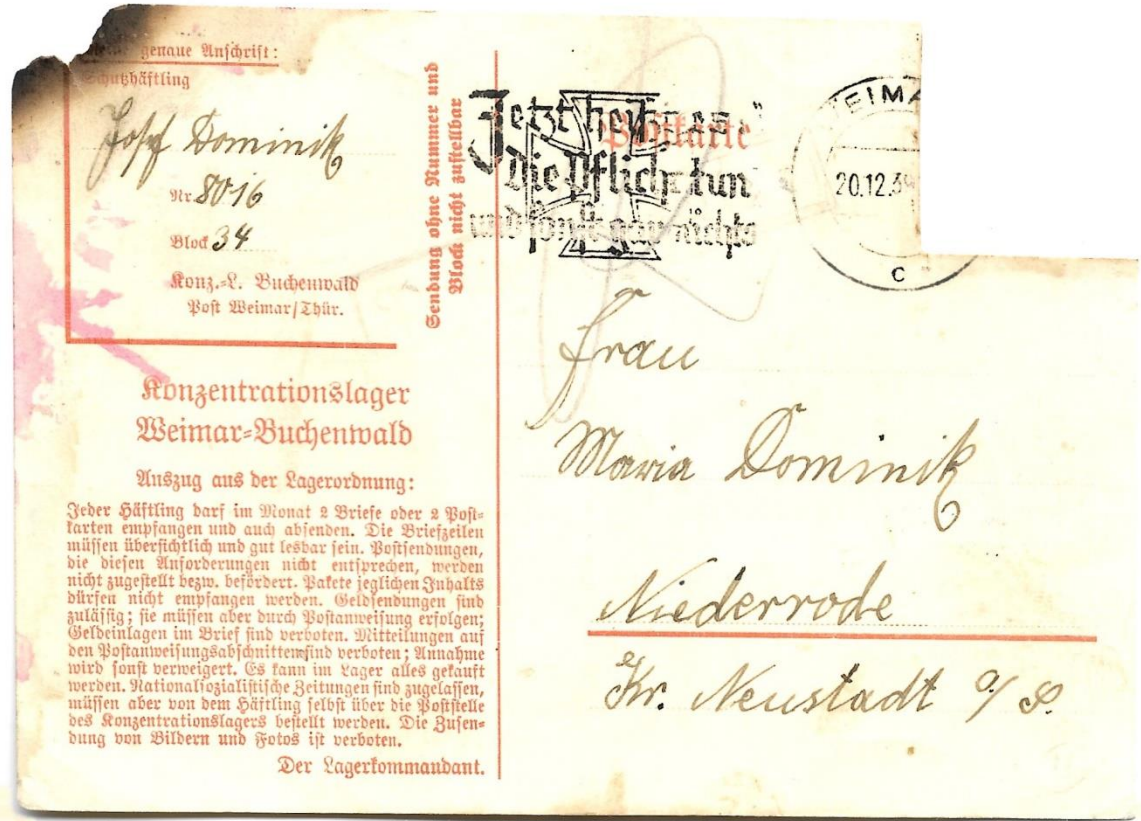 genaue Anschrift:
Schutzhäftling
Josef Dominik
Nr 8016
Block 34
Konz.-L. Buchenwald
Post Weimar/Thür.
Sendung ohne Nummer und
Block nicht zustellbar
Konzentrationslager
Weimar-Buchenwald
Auszug aus der Lagerordnung:
Jeder Häftling darf im Monat 2 Briefe oder 2 Post-
karten empfangen und auch absenden. Die Briefzeilen
müssen übersichtlich und gut lesbar sein. Postsendungen,
die diesen Anforderungen nicht entsprechen, werden
nicht zugestellt bezw. befördert. Pakete jeglichen Inhalts
dürfen nicht empfangen werden. Geldsendungen sind
zulässig; sie müssen aber durch Postanweisung erfolgen;
Geldeinlagen im Brief sind verboten. Mitteilungen auf
den Postanweisungsabschnitten sind verboten; Annahme
wird sonst verweigert. Es kann im Lager alles gekauft
werden. Nationalsozialistische Zeitungen sind zugelassen,
müssen aber von dem Häftling selbst über die Poststelle
des Konzentrationslagers bestellt werden. Die Zusen-
dung von Bildern und Fotos ist verboten.
Der Lagerkommandant.
Postkarte
Jetzt heißt es
die Pflicht tun
und sonst gar nichts
EIMA
20.12.39
c
Frau
Maria Dominik
Niederrode
Kr. Neustadt o/S.